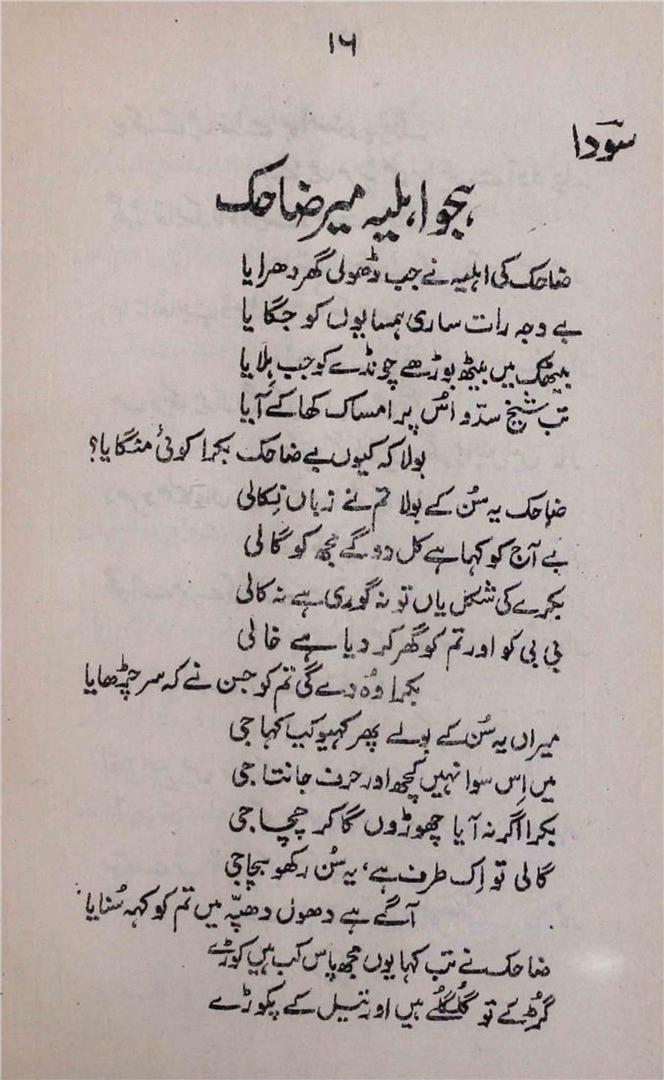 ۱۶
سودا
ہجو اہلیہ میر ضاحک
ضاحک کی اہلیہ نے جب ڈھولی گھر دھرایا
بے وجہ رات ساری ہمسایوں کو جگایا
بیٹھک میں بیٹھ بوڑھے چونڈے کو جب ہلایا
تب شیخ سدّو اُس پر امساک کھا کے آیا
بولا کہ کیوں بے ضاحک بکرا کوئی منگایا؟
ضاحک یہ سُن کے بولا تم نے زباں نکالی
بے آج کو کہا ہے کل دو گے مجھ کو گالی
بکرے کی شکل یاں تو نہ گوری ہے نہ کالی
بی بی کو اور تم کو گھر کر دیا ہے خالی
بکرا وُہ دے گی تم کو جن نے کہ سر چڑھایا
میراں یہ سُن کے بولے پھر کہیو کب کہا جی
میں اِس سوا نہیں کچھ اور حرف جانتا جی
بکرا اگر نہ آیا چھوڑوں گا کر چچا جی
گالی تو اِک طرف ہے، یہ سُن رکھو بچا جی
آگے ہے دھول دھپّہ میں تم کو کہہ سُنایا
ضاحک نے تب کہا یوں مجھ پاس کب ہیں کوڑے
گُڑ کے تو گُلگلے ہیں اور تیل کے پکوڑے